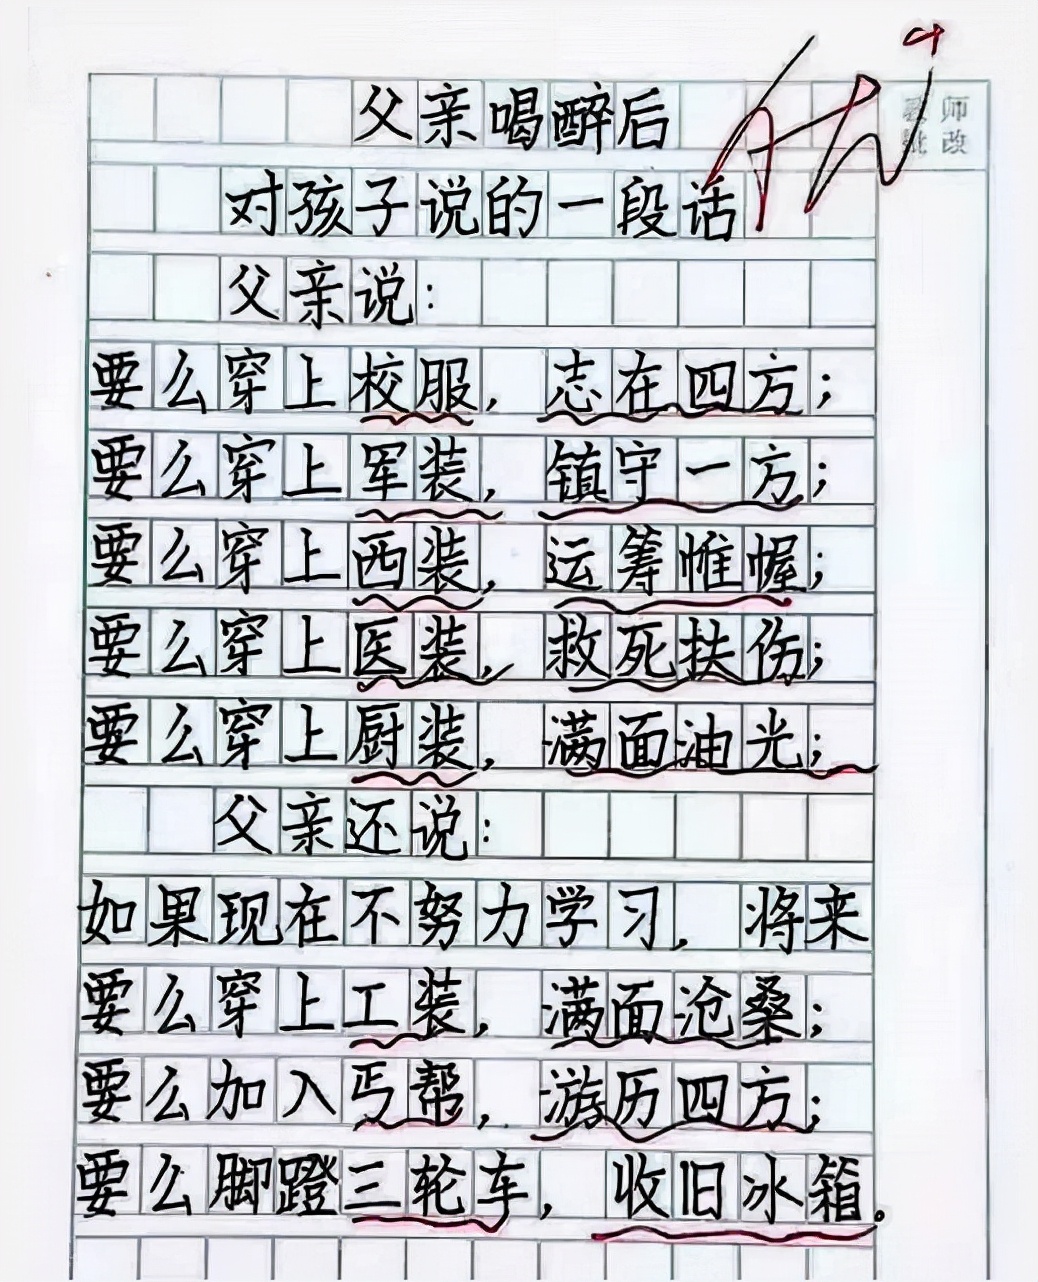 父亲喝醉后
对孩子说的一段话
优
教师
批改
父亲说：
要么穿上校服，志在四方；
要么穿上军装，镇守一方；
要么穿上西装，运筹帷幄；
要么穿上医装，救死扶伤；
要么穿上厨装，满面油光；
父亲还说：
如果现在不努力学习，将来
要么穿上工装，满面沧桑；
要么加入丐帮，游历四方；
要么脚蹬三轮车，收旧冰箱。